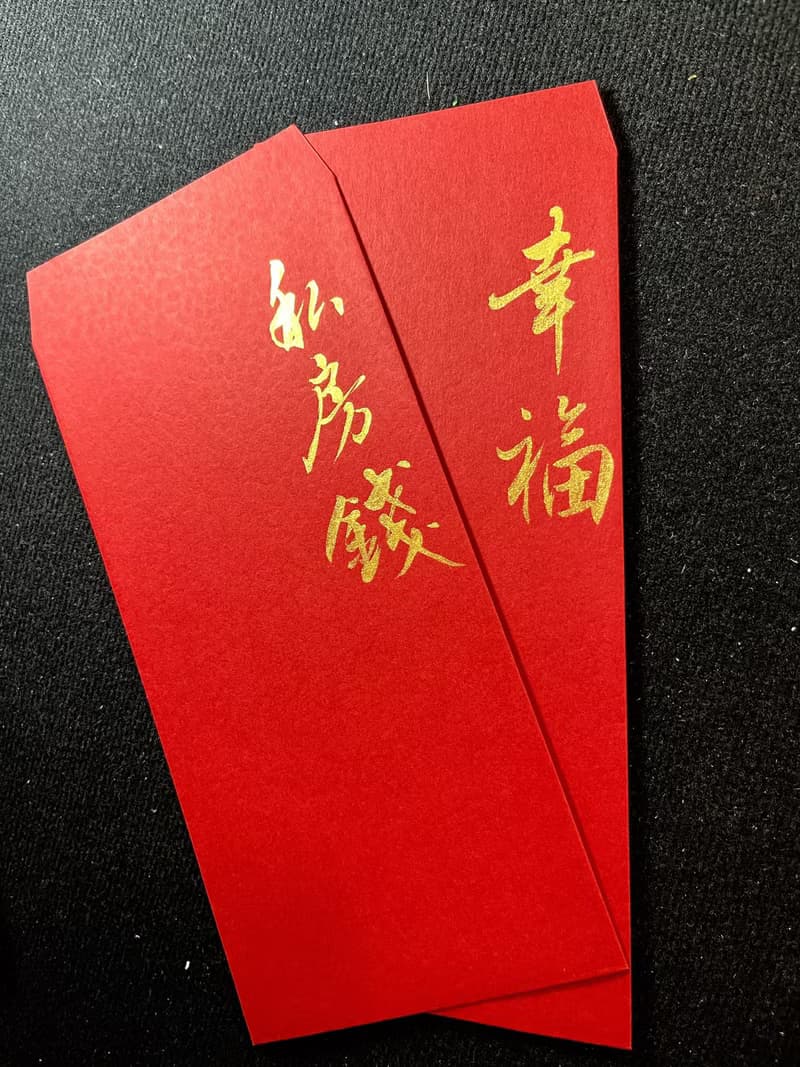 私房錢
幸福